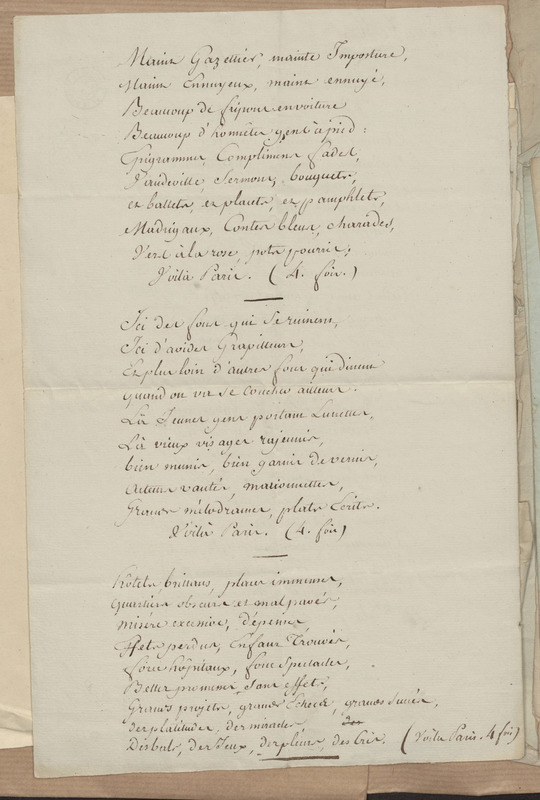 Maint Gazettier, mainte Imposture,
Maint Ennuyeux, maint ennuyé,
Beaucoup de fripons en voiture
Beaucoup d'honnetes gens à pied :
Epigrammes, Complimens fades,
Vaudeville, Sermons, bouquets,
et ballets, et placets, et pamphlets,
Madrigaux, Contes bleus, charades,
Vers à la rose, pots pourris,
Voilà Paris. ( 4. fois. )
Ici des fous qui se ruinent,
Ici d'avides Grapilleurs,
Et plus loin d'autres fous qui dinent
quand on va se coucher ailleurs.
Là Jeunes gens portant Lunettes,
Là vieux visages rajeunis,
bien munis, bien garnis de vernis,
Acteurs vantés, marionnettes,
Grands mélodrames, plats Ecrits.
Voilà Paris. (4. fois)
hôtels brillans, places immenses,
Quartiers obscurs et mal pavés,
misère excessive, dépenses,
Effets perdus, Enfans Trouvés,
force hôpitaux, force spectacles,
Belles promesses, sans effets,
Grands projets, grands Echecs, grands succès,
des platitudes, des miracles
des
Des bals, des Jeux, des pleurs, des Cris. (Voila Paris. 4 fois)